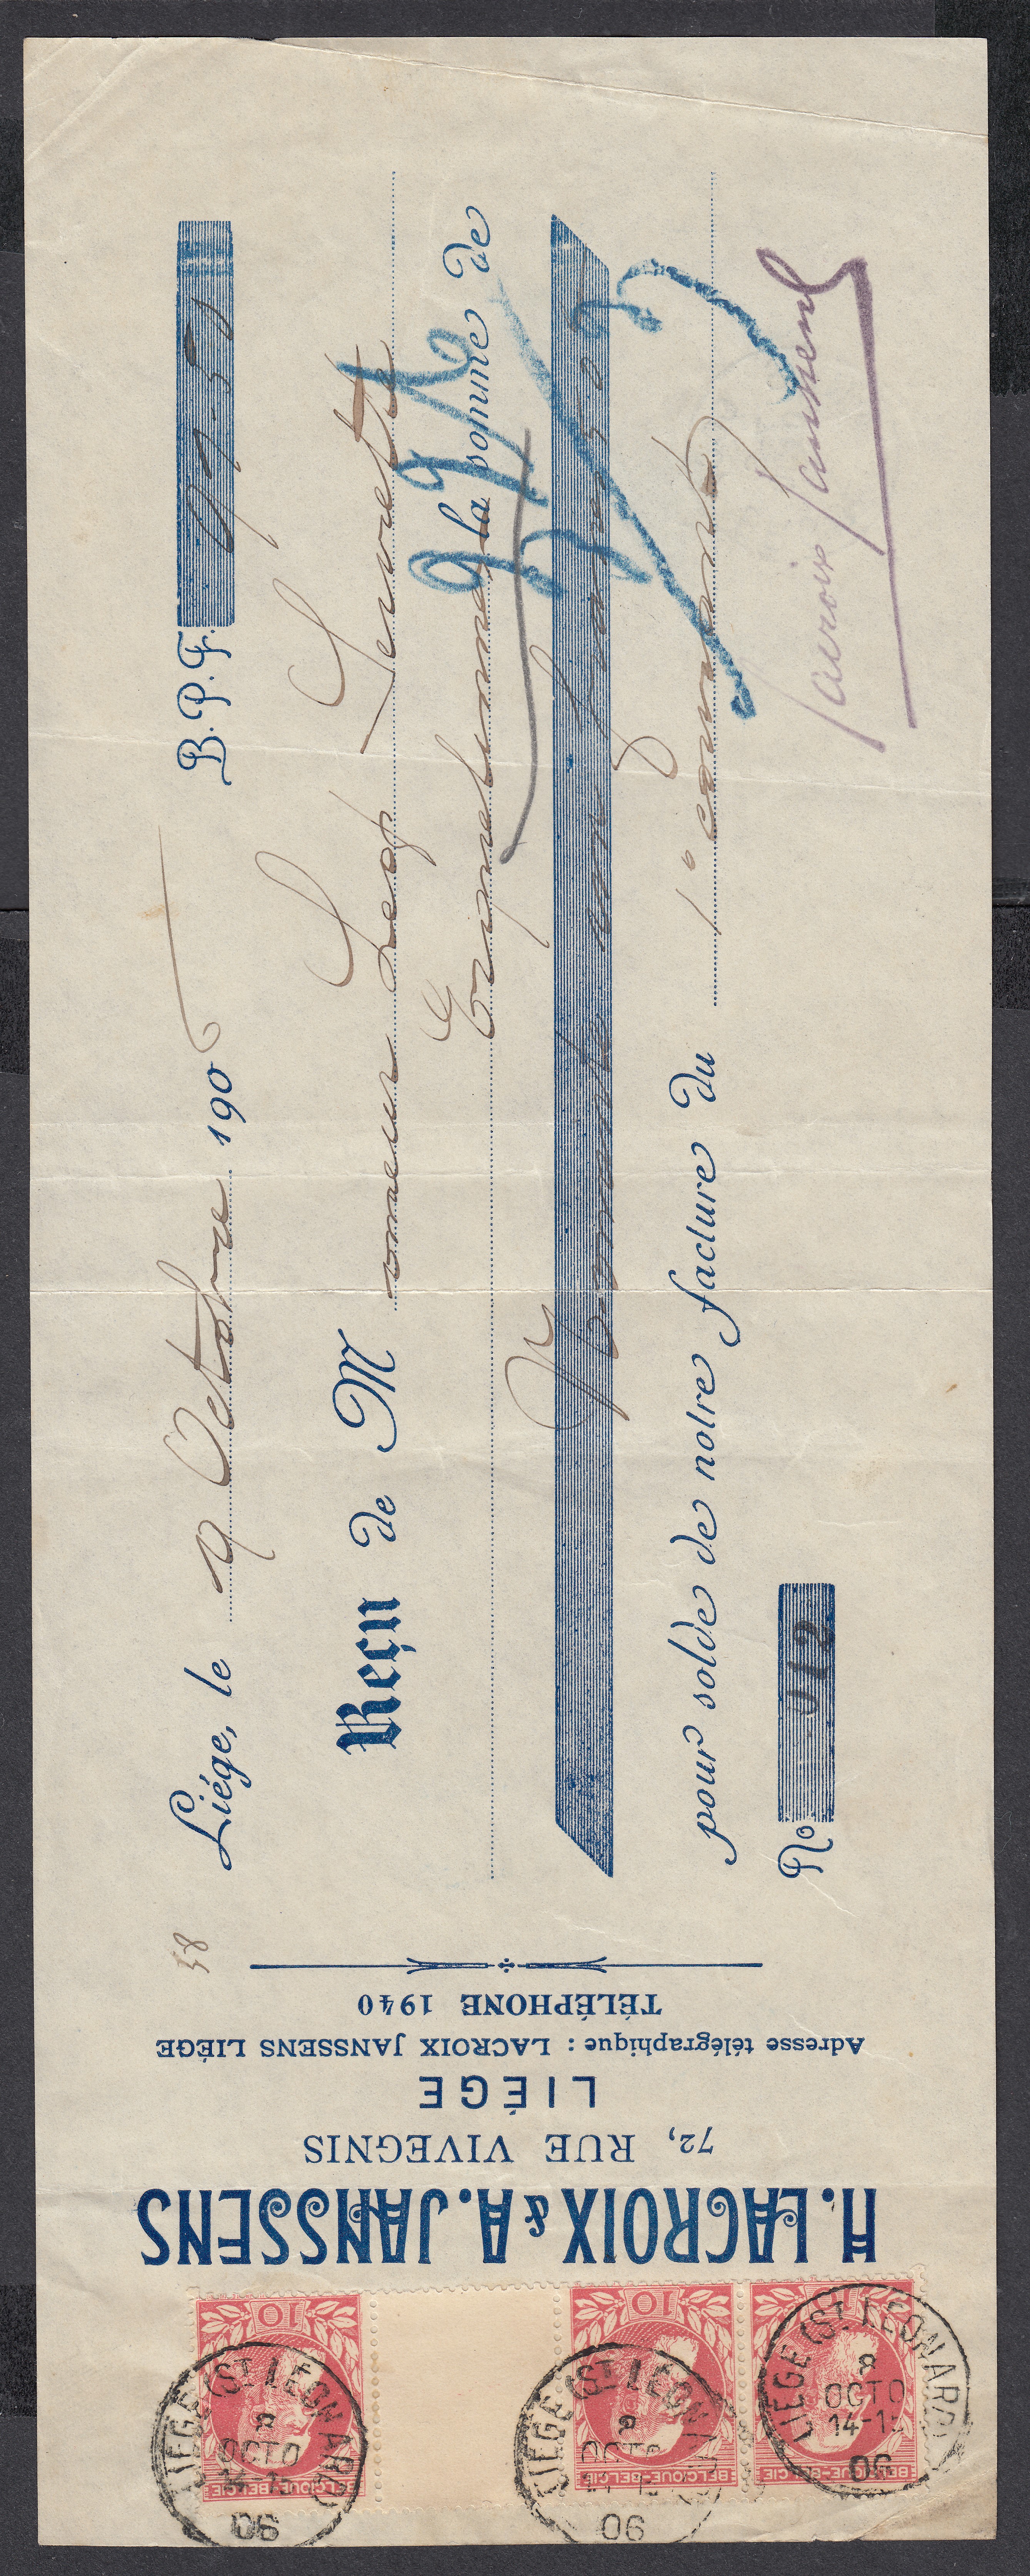 H. LACROIX & A. JANSSENS
72, RUE VIVEGNIS
LIÉGE
Adresse télégraphique : LACROIX JANSSENS LIÉGE
TÉLÉPHONE 1940
58
Liége, le 9 Octobre 1906
B.P.F.
Reçu de Monsieur Leop Servotte
la somme de
francs 50
pour solde de notre facture du 1° courant
No 012
Lacroix Janssens
10
BELGIQUE-BELGIE
10
BELGIQUE-BELGIE
BELGIQUE-BELGIE
LIEGE (ST. LEONARD)
8
OCTO
14-15
06
LIEGE (ST. LEONARD)
8
OCTO
14-15
06
LIEGE (ST. LEONARD)
8
OCTO
14-15
06